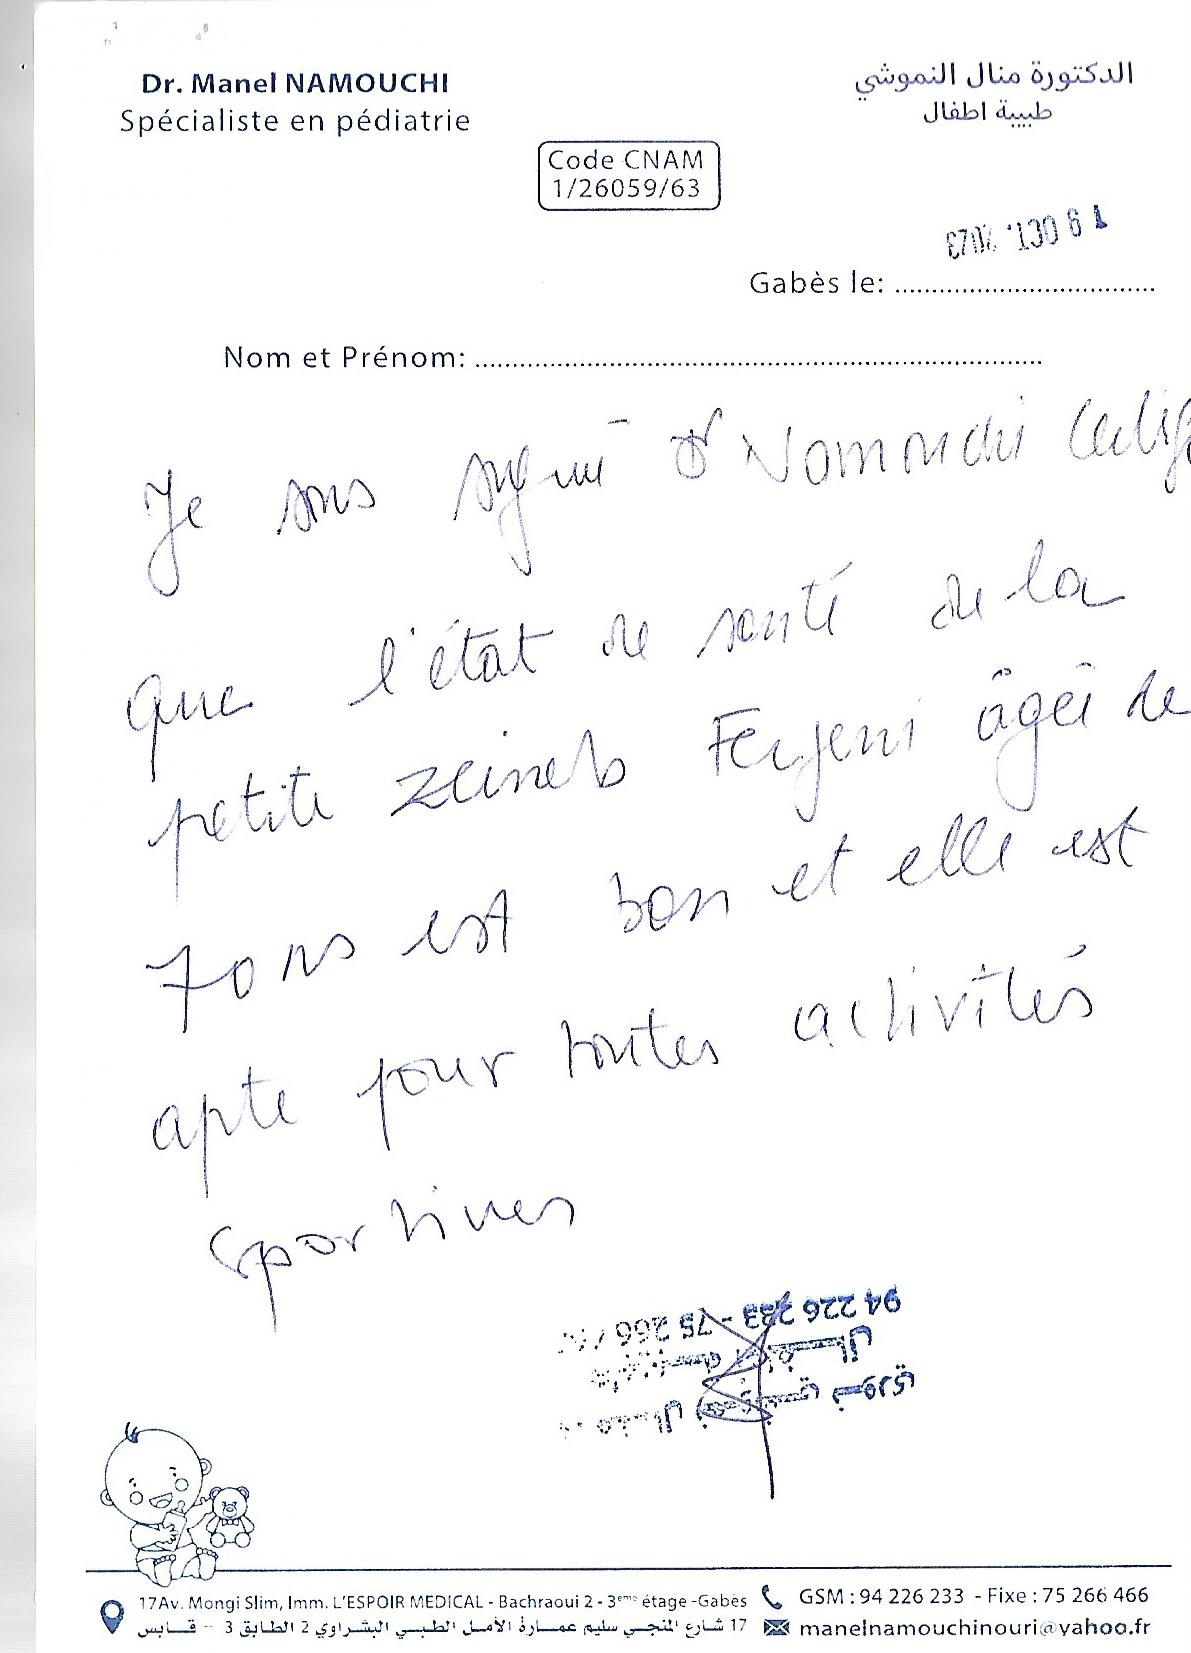 Dr. Manel NAMOUCHI
Spécialiste en pédiatrie
الدكتورة منال النموشي
طبيبة اطفال
Code CNAM
1/26059/63
1 9 OCT. 2023
Gabès le: ...................................
Nom et Prénom: ............................................................................
Je sous signé Dr Namouchi
que l'état de santé de la
petite Zeineb Ferjeni âgée de
7 ans est bon et elle est
apte pour toutes activités
sportives
94 226 233 - 75 266
17Av. Mongi Slim, Imm. L'ESPOIR MEDICAL - Bachraoui 2 - 3ème étage -Gabès
17 شارع المنجي سليم عمارة الأمل الطبي البشراوي 2 الطابق 3 - قابس
GSM : 94 226 233 - Fixe : 75 266 466
manelnamouchinouri@yahoo.fr